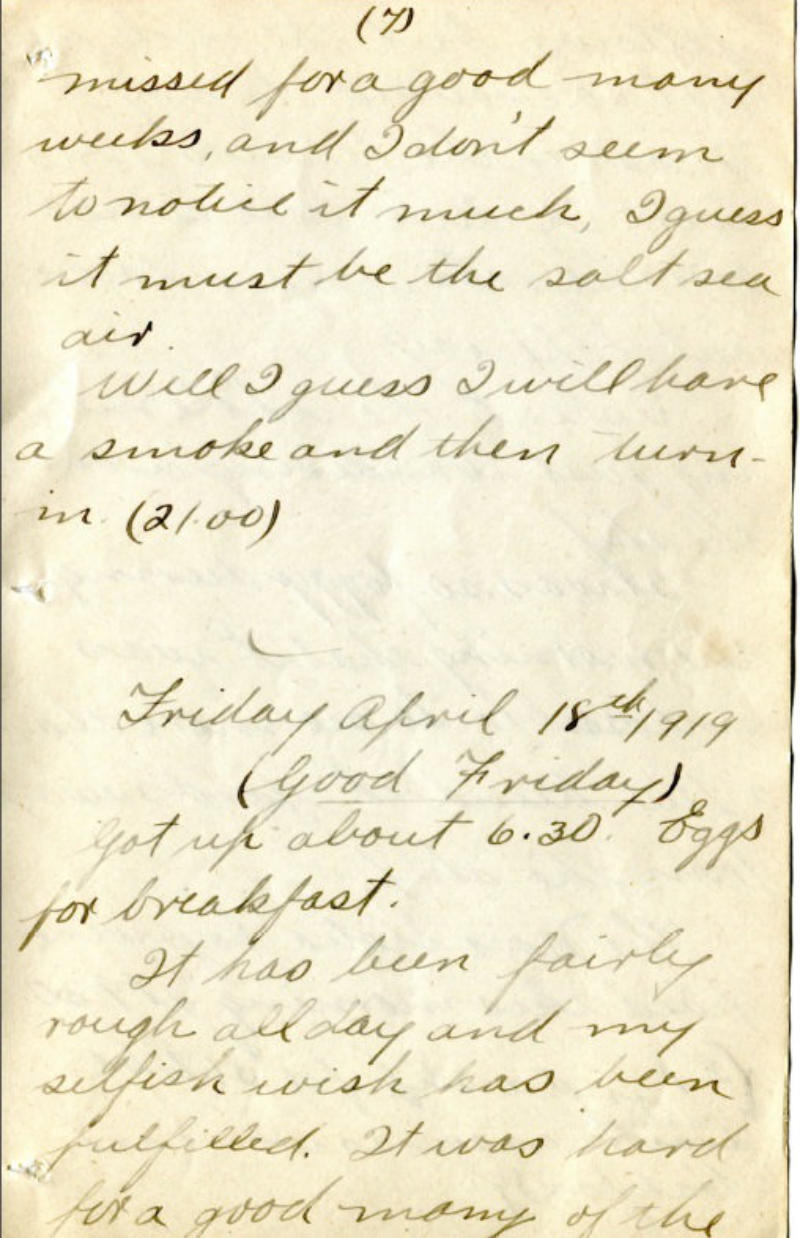 (7)
missed for a good many
weeks, and I don't seem
to notice it much, I guess
it must be the salt sea
air.
Well I guess I will have
a smoke and then turn-
in. (21.00)
Friday April 18th/1919
(Good Friday)
Got up about 6.30. Eggs
for breakfast.
It has been fairly
rough all day and my
selfish wish has been
fulfilled. It was hard
for a good many of the